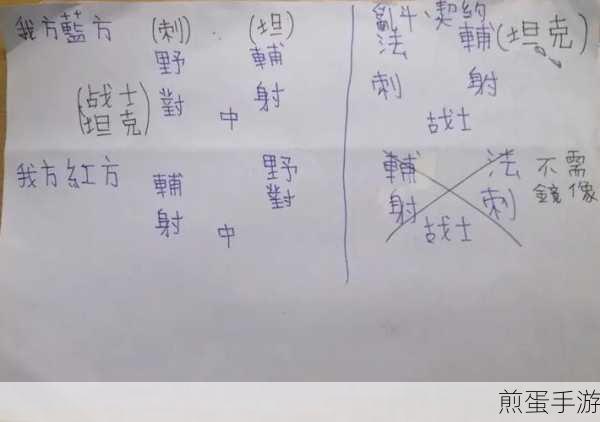 我方藍方 (刺) (坦)
野 輔
(战士 坦克) 對 中 射
我方紅方 輔 野
射 中 對
亂斗、契約
法 輔(坦克)
刺 射
战士
輔 法 不需
射 刺 鏡像
战士
煎蛋手游